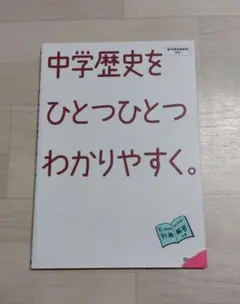 中学歴史を
ひとつひとつ
わかりやすく。